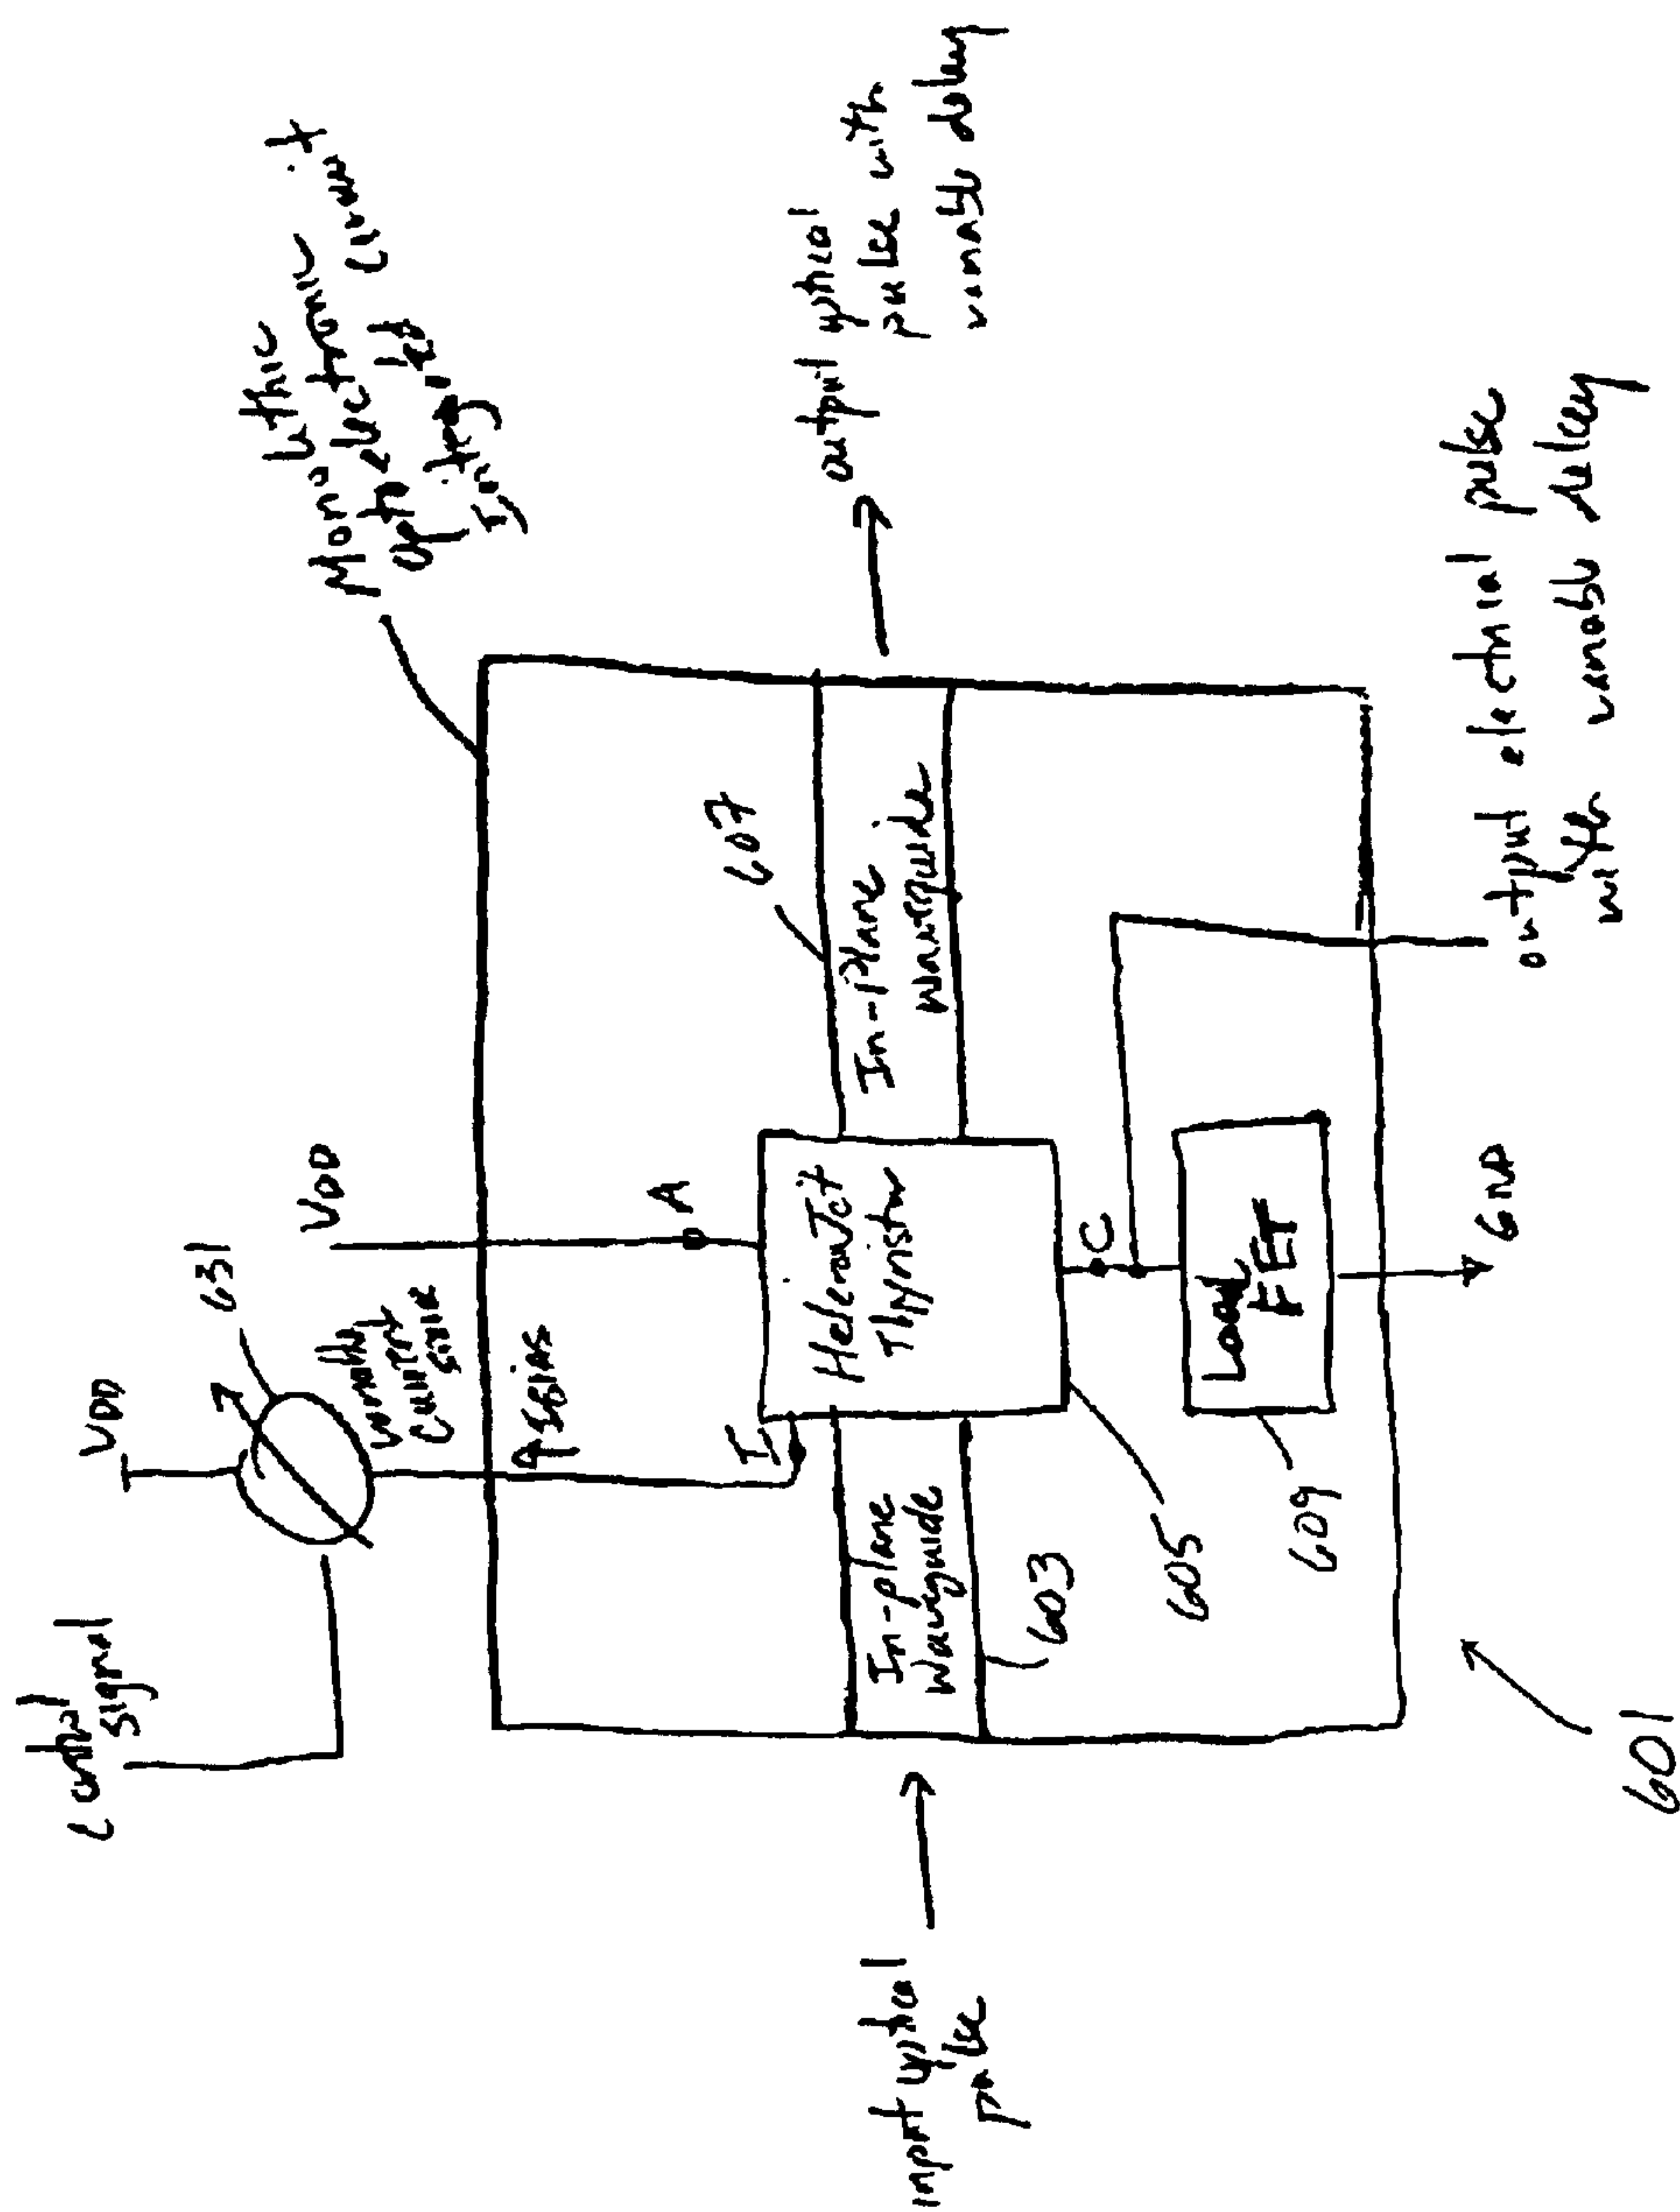 Control
signal
VDD
631
variable
current
source
VDD
Monolithic
Optoelectronic
Integrated Circuit
IBias
A
I
Heterojct
thyristor
607
In-Plane
waveguide
In-plane
Waveguide
603
605
C
Load
FET
609
GND
601
input optical
pulse
output optical
pulse with
variable delay
output electrical pulse
with variable delay